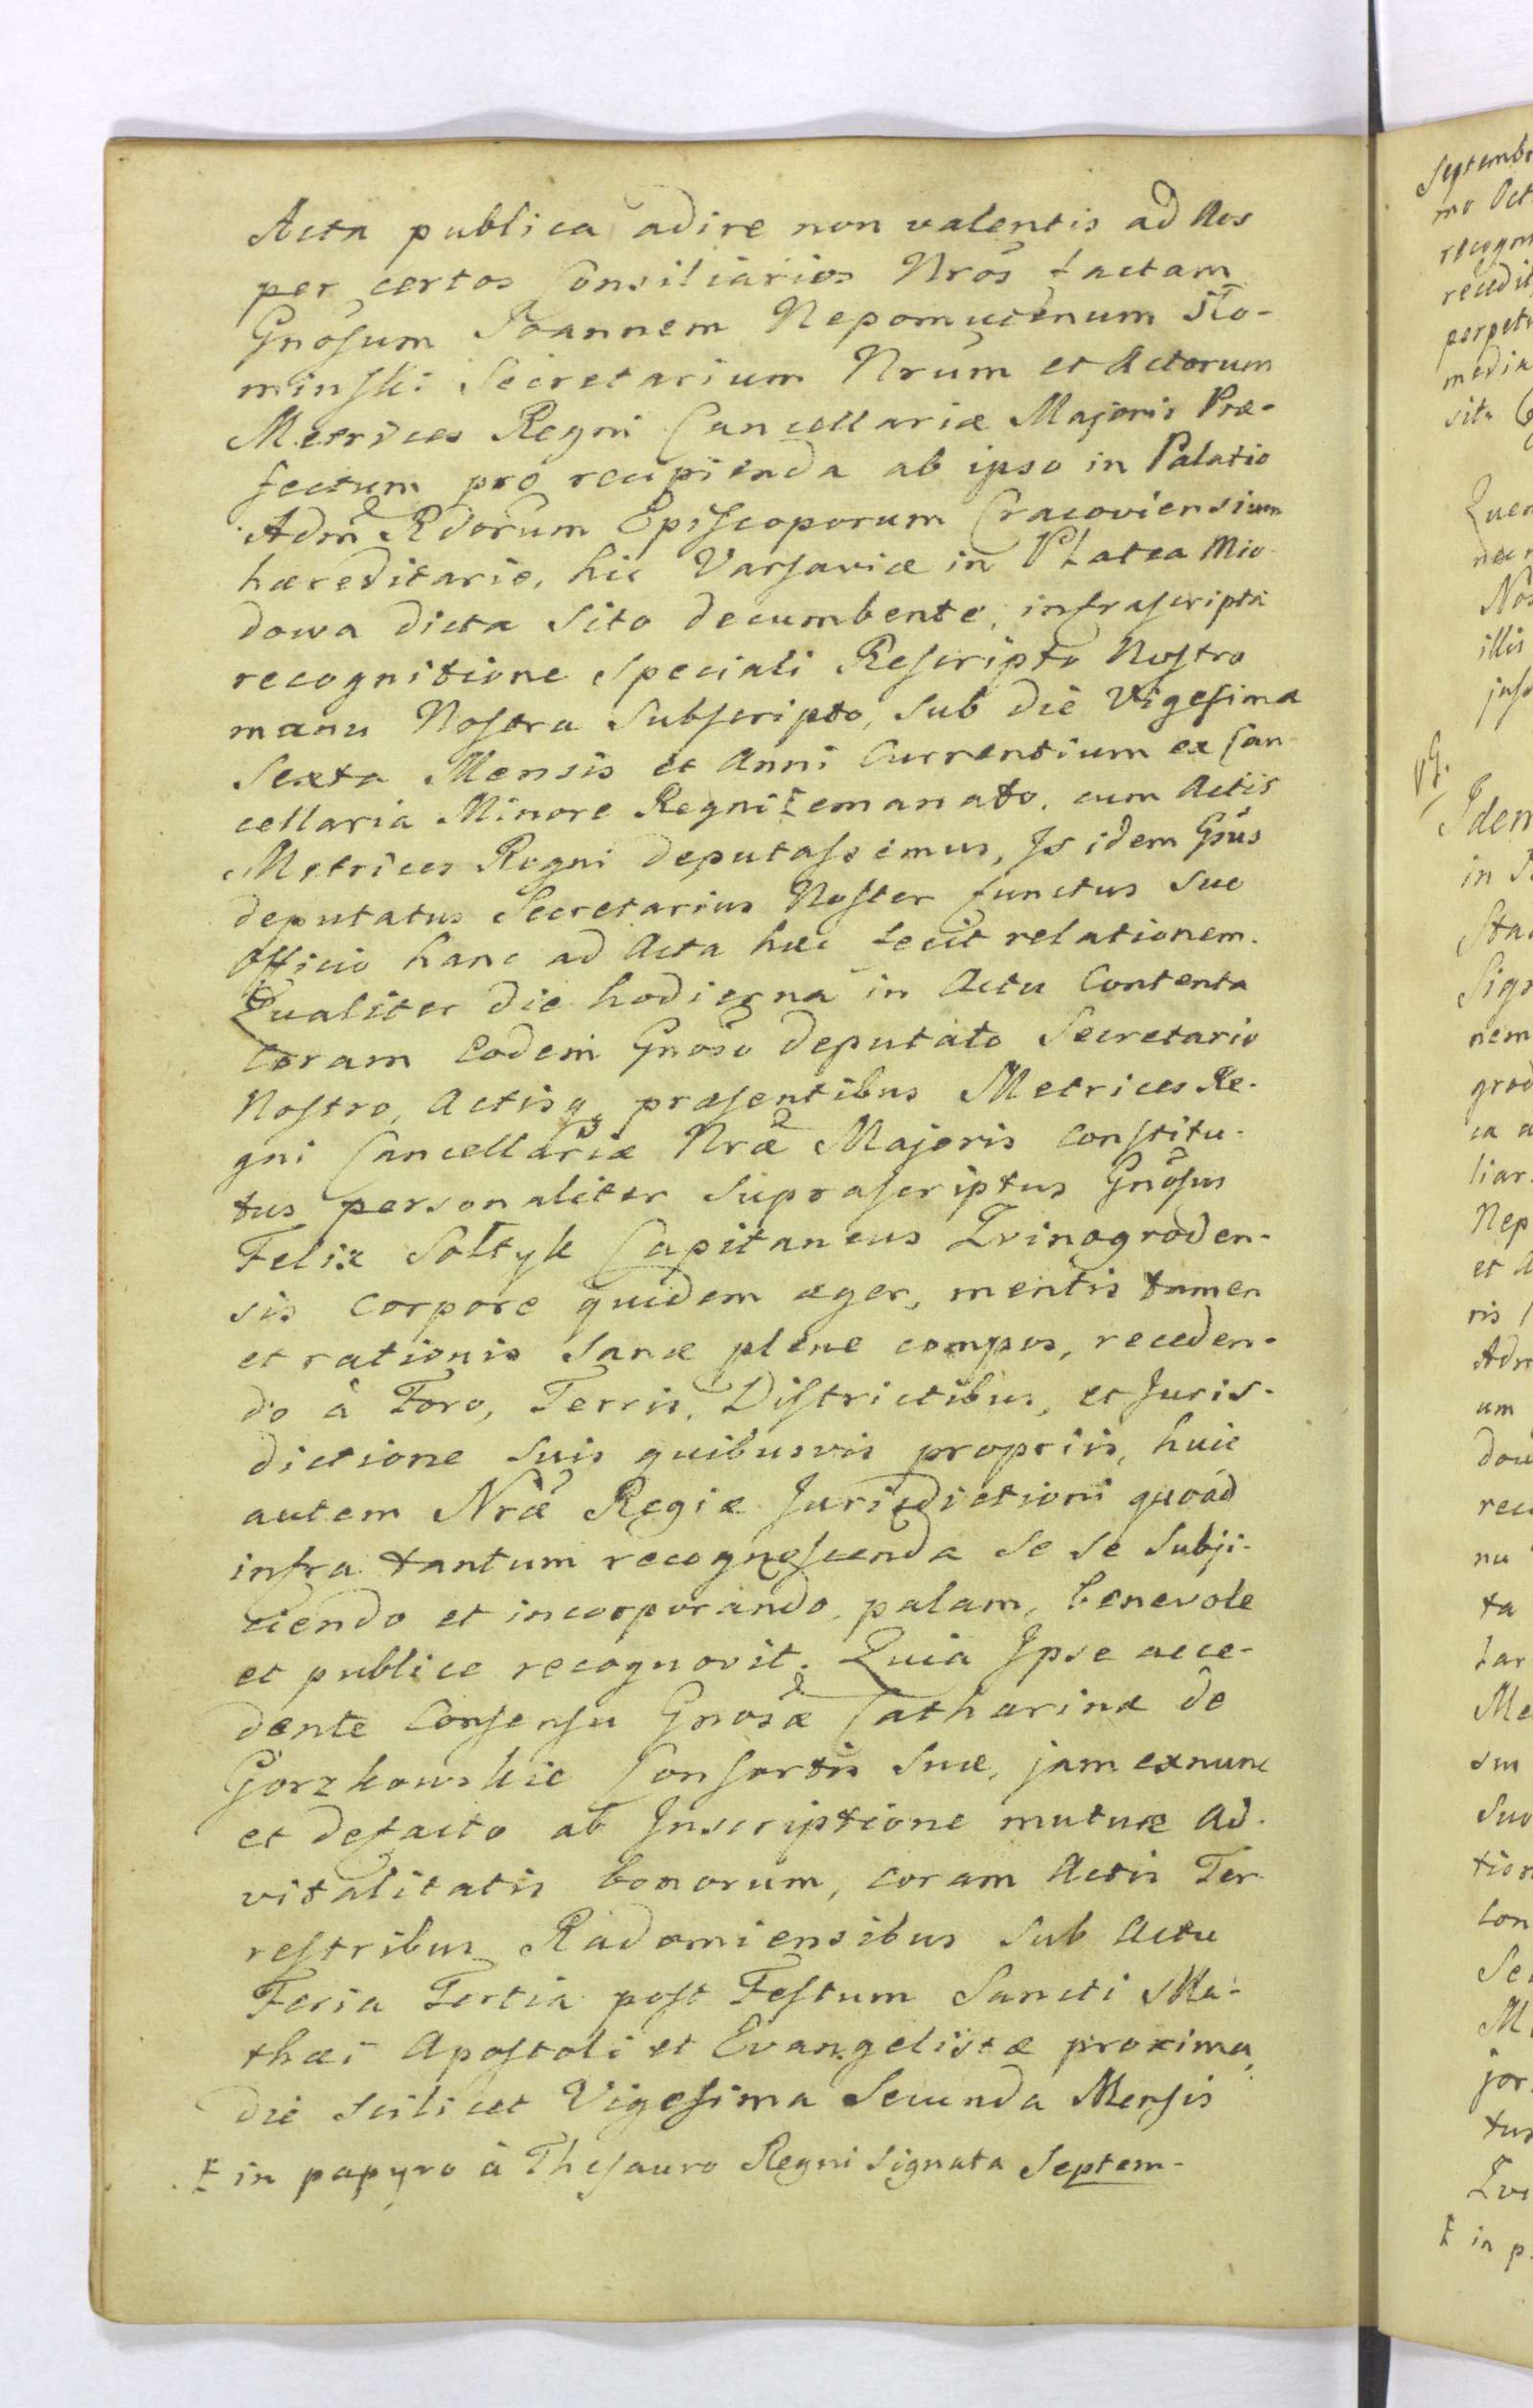 Acta publica adire non valentis ad Nos
per certos Consiliarios Nrõs factam
Gnõsum Joannem Nepomucenum Sło-
minski Secretarium Nrũm et Actorum
Metrices Regni Cancellariæ Majoris Præ-
fectum pro recipienda ab ipso in Palatio
Adm̃ Rdorum Episcoporum Cracoviensium
hæreditario, hic Varsaviæ in Platea Mio-
dowa dicta sito decumbente, infrascripta
recognitione speciali Rescripto Nostro
manu Nostra Subscripto, sub die Vigesima
Sexta Mensis et Anni Currentium ex Can-
cellaria Minore Regni ‡ emanato, cum Actis
Metrices Regni deputassemus, Is idem Gsũs
deputatus Secretarius Noster functus suo
Officio hanc ad Acta hæc fecit relationem.
Qualiter die hodierna in Actu Contenta
Coram Eodem Gnõso deputato Secretario
Nostro, Actisq, præsentibus Metrices Re-
gni Cancellariæ Nræ Majoris Constitu-
tus personaliter Suprascriptus Gnõsus
Felix Sołtyk Capitaneus Zvinogroden-
sis Corpore quidem æger, mentis tamen
et rationis sanæ plene compos, receden-
do à Foro, Terris, Districtibus, et Juris-
dictione Suis quibusvis propriis, huic
autem Nræ Regiæ Jurisdictioni quoad
infra tantum recognoscenda se se Subji-
ciendo et incorporando, palam, benevole
et publice recognovit. Quia Ipse acce-
dente Consensu Gnosæ Catharinæ de
Gorzkowskie Consortis Suæ, jam exnunc
et defacto ab Inscriptione mutuæ Ad-
vitalitatis bonorum, coram Actis Ter-
restribus Radomiensibus sub Actu
Feria Tertia post Festum Sancti Ma-
thæi Apostoli et Evangelistæ proxima,
die scilicet Vigesima Secunda Mensis
‡ in papyro à Thesauro Regni Signata Septem-